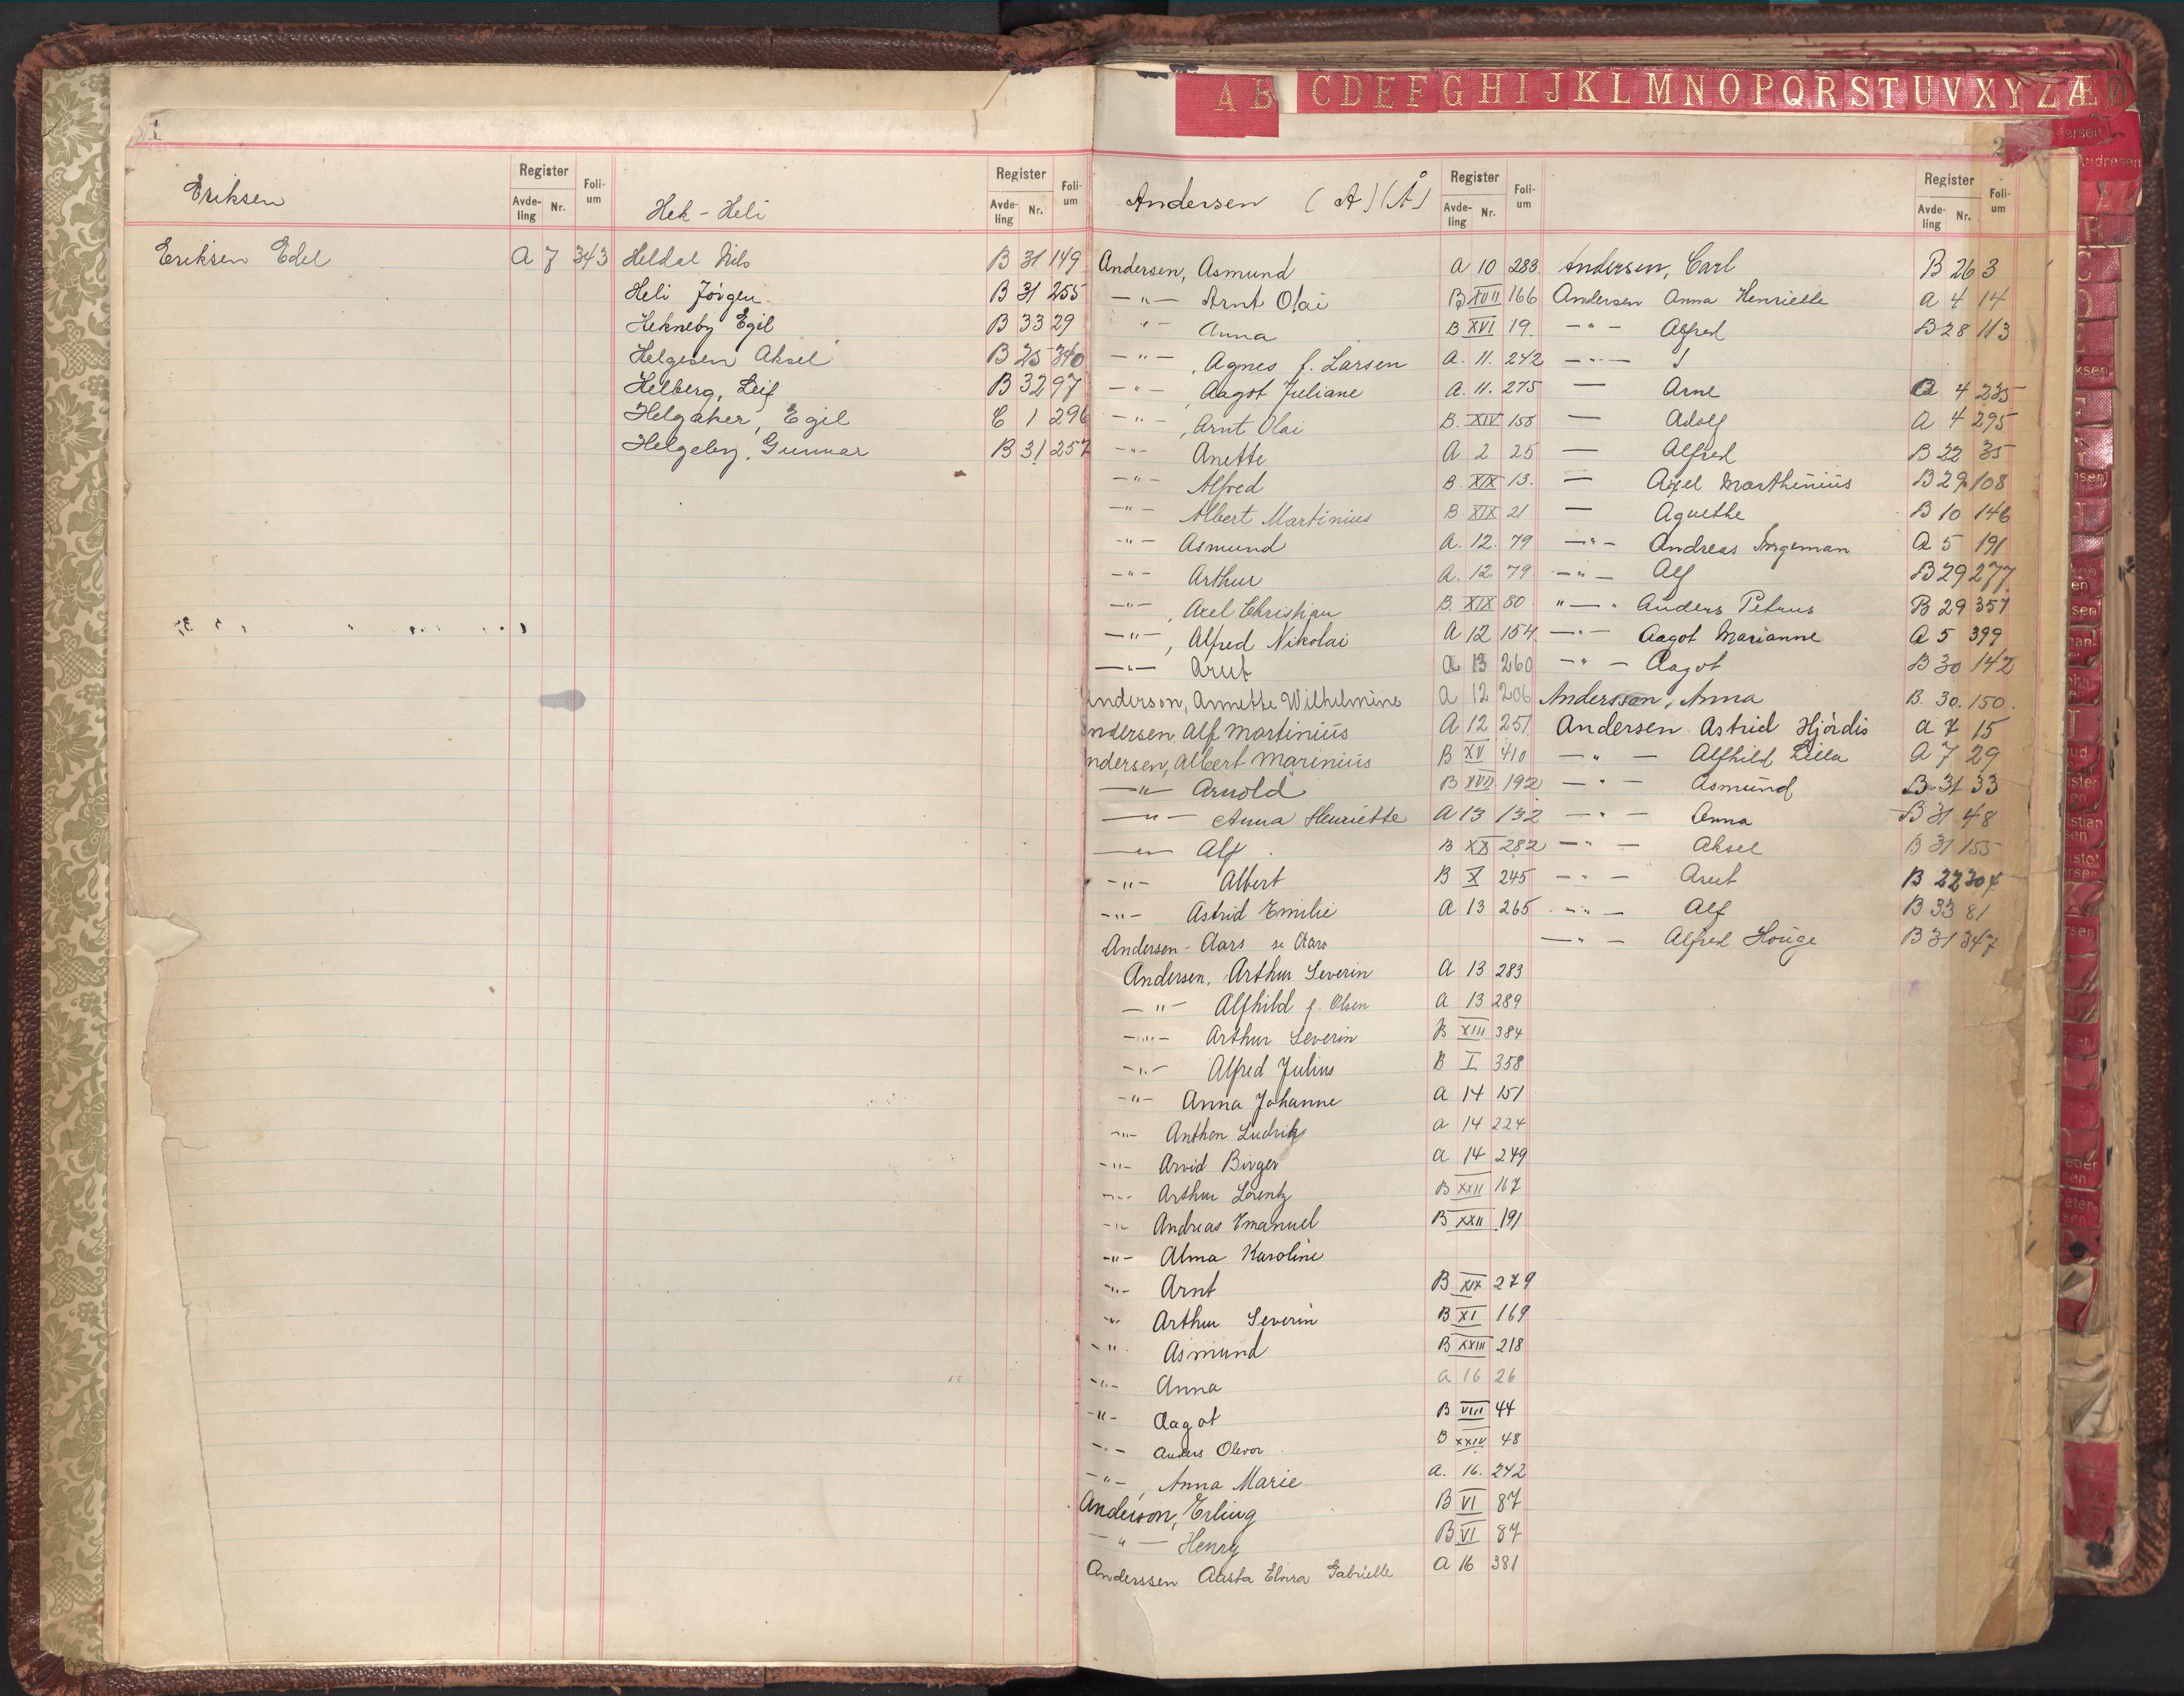 A B C D E F G H I J K L M N O P Q R S T U V X Y Z Æ Ø
Eriksen
Register
Avde-ling Nr.
Foli-um
Eriksen Edel A 7 343
Hek - Heli
Register
Avde-ling Nr.
Foli-um
Heldal Nils B 31 149
Heli Jörgen B 31 255
Hekneby Egil B 33 29
Helgesen Aksel B 25 340
Helberg, Leif B 32 97
Helgaker, Egil C 1 296
Helgeby, Gunnar B 31 257
Andersen (A) (Å)
Register
Avde-ling Nr.
Foli-um
Andersen, Asmund A 10 283
—"— Arnt Olai B XVII 166
"— Anna B XVI 19.
—"— , Agnes f. Larsen A. 11. 242
—"— , Aagot Juliane A. 11. 275
—"— , Arnt Olai B. XIV 158
—"— Anette A 2 25
—"— Alfred B. XIX 13.
—"— Albert Martinius B. XIX 21
—"— Asmund A. 12. 79
—"— Arthur A. 12. 79
—"— , Axel Christian B. XIX 80
—"— , Alfred Nikolai A 12 154
—"— Arnt A 13 260
Anderson, Annette Wilhelmine A 12 206
Andersen Alf Martinius A 12 251
Andersen, Albert Marinius B XV 410
—"— Arnold B XVII 192
—"— Anna Henriette A 13 132
—"— Alf B XX 282
—"— Albert B X 245
—"— Astrid Emilie A 13 265
Andersen - Aars se Aars
Andersen, Arthur Severin A 13 283
—"— Alfhild f. Olsen A 13 289
—"— Arthur Severin B XIII 384
—"— Alfred Julius B I 358
—"— Anna Johanne A 14 151
—"— Anthon Ludvik A 14 224
—"— Arvid Birger A 14 249
—"— Arthur Lorentz B XXII 167
—"— Andreas Emanuel B XXII 191
—"— Alma Karoline
—"— Arnt B XIX 279
—"— Arthur Severin B XI 169
—"— Asmund B XXIII 218
—"— Anna A 16 26
—"— Aagot B VIII 44
—"— Anders Olevor B XXIV 48
—"— , Anna Marie A. 16. 242
Anderson, Erling B VI 87
—"— Henry B VI 87
Anderssen Aasta Elvira Gabrielle A 16 381
2
Register
Avde-ling Nr.
Foli-um
Andersen, Carl B 26 3
Andersen Anna Henriette A 4 14
—"— Alfred B 28 113
—"—
— Arne A 4 235
— Adolf A 4 295
— Alfred B 22 35
— Axel Marthinius B 29 108
— Agnethe B 10 146
—"— Andreas A 5 191
—"— Alf B 29 277
"—" Anders Petrus B 29 357
—"— Aagot Marianne A 5 399
—"— Aagot B 30 142
Andersson, Anna B. 30. 150.
Andersen Astrid Hjördis A 7 15
—"— Alfhild Lilla A 7 29
—"— Asmund B 31 33
—"— Anna B 31 48
—"— Aksel B 31 155
—"— Arnt B 22 304
—"— Alf B 33 81
—"— Alfred Houge B 31 347